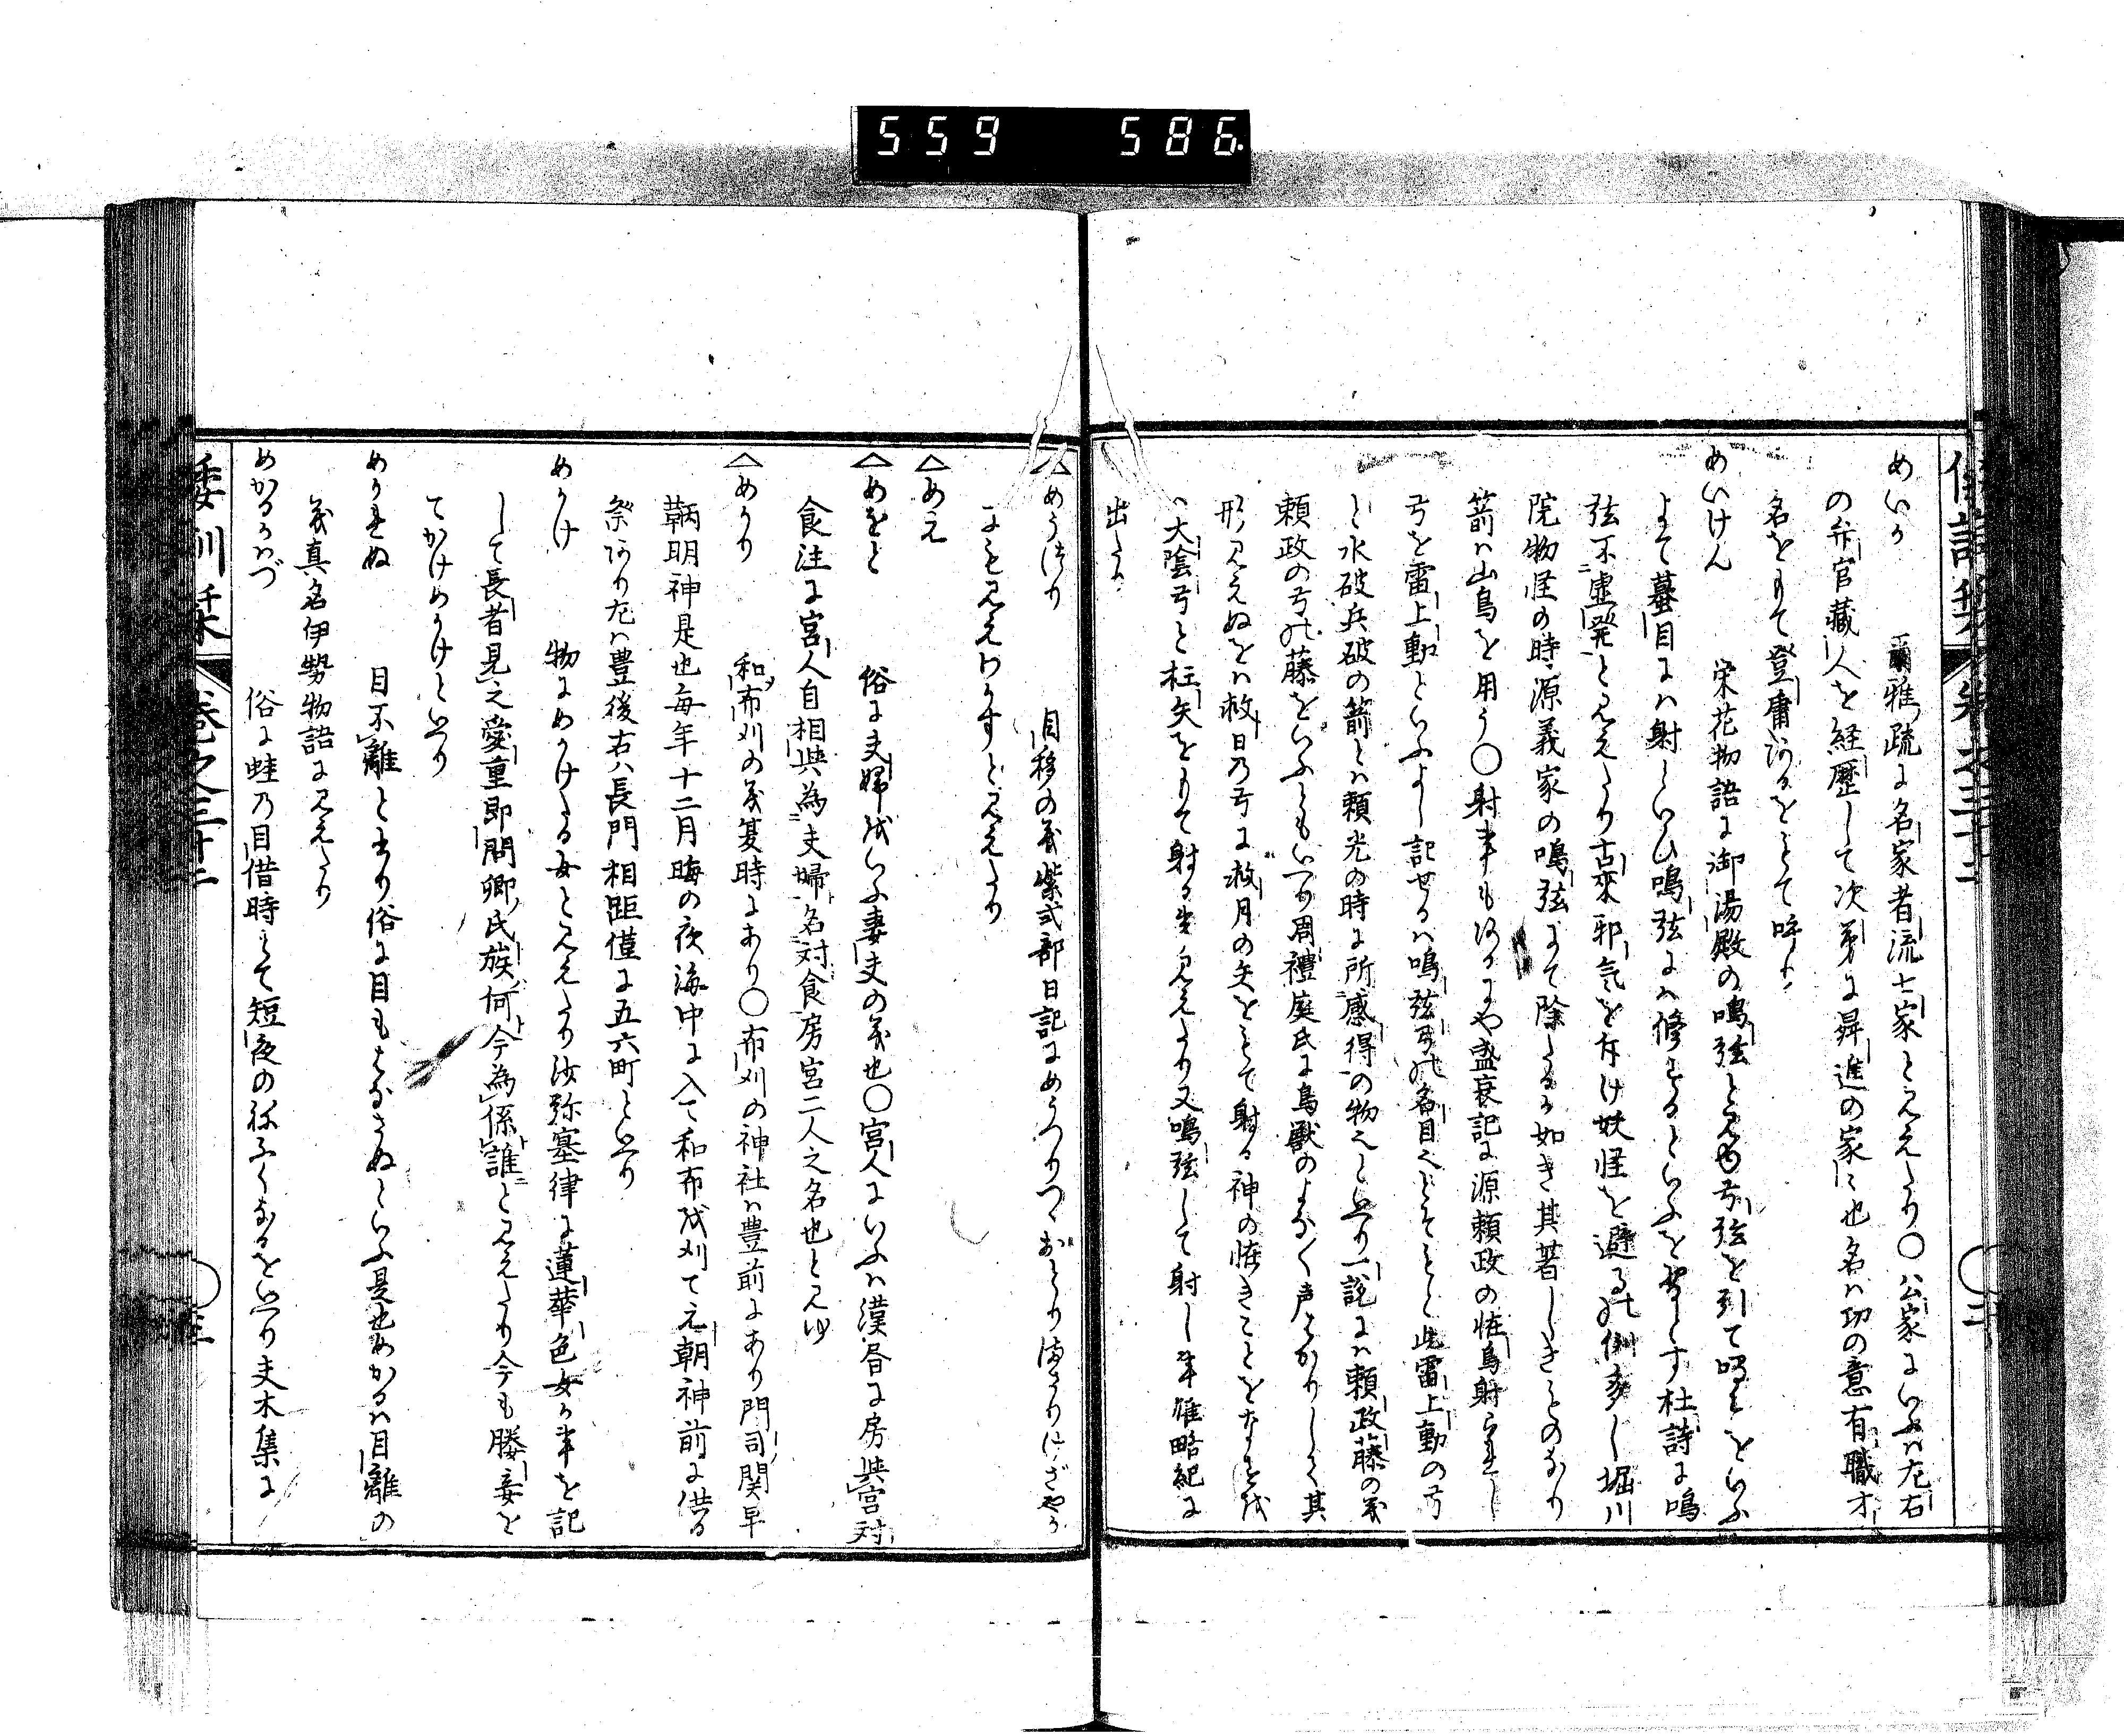 559 586.
めいか 爾雅疏に名家者流士家とみえたり○公家にいふハ左右
の弁官蔵人を経歴して次第に昇進の家々也名ハ功の意有職才
名をもて登庸あるをもて呼り
めいけん 栄花物語に御湯殿の鳴弦と見ゆ弓弦を引て鳴すをいふ
よて蟇目にハ射といひ鳴弦にハ修するといふを習とす杜詩に鳴
弦不虚発とみえたり古来邪気を存け妖怪を避るの例多し堀川
院物怪の時源義家の鳴弦にて除たるか如き其著しきものなり
箭ハ山鳥を用う○射事もあるにや盛衰記に源頼政の怪鳥射られし
弓を雷上動といふよし記せるハ鳴弦弓の名目へしそもそも此雷上動の弓
と水破兵破の箭とハ頼光の時に所感得の物之といへり一説にハ頼政藤の義
頼政の弓の藤をいふともいへり周礼庭氏に鳥獣のよなく声はかりして其
形みえぬをハ救日乃弓に救月の矢をもて射る神の怪きことをなすを
ハ大陰弓と枉矢をもて射るよし見えたり又鳴弦して射し事雑略紀に
出たり
△めうつり 目移の義紫式部日記にめうつりつゝおとりまさりけざやか
にも見えわかすと見えたり
△めえ
△めをと 俗に夫婦をいふ妻夫の義也○宮人にいふハ漢昏に房与宮対
食注に宮人自相与為夫婦名対食房宮二人之名也と見ゆ
△めかり 和布刈の義夏時にあり○布刈の神社ハ豊前にあり門司関早
鞆明神是也毎年十二月晦の夜海中に入て和布を刈て元朝神前に供る
祭あり左ハ豊後右ハ長門相距僅に五六町といへり
めかけ 物にめかけたる女とみえたり沙弥塞律に蓮華色女か事を記
して長者見之愛重即問卿氏族何今為係誰とみえたり今も媵妾を
てかけめかけといへり
めかれぬ 目不離と書り俗に目もはなさぬといふ是也めかるハ目離の
義真名伊勢物語に見えたり
めかるかハづ 俗に蛙乃目借時とて短夜のねふくなるをいへり夫木集に
倭訓栞 巻之三十二